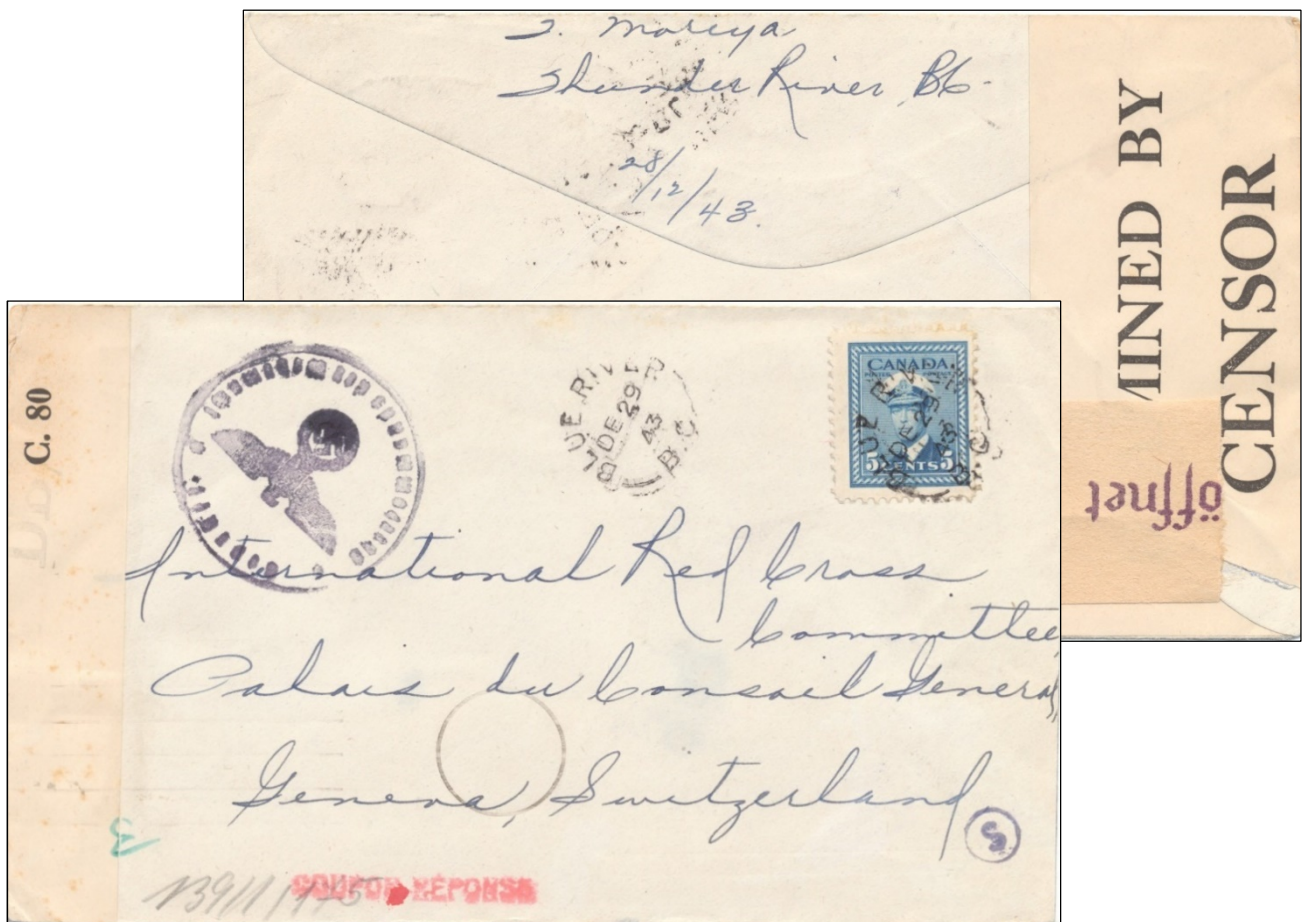 Thunder River BC-
28/12/43.
MINED BY
CENSOR
öffnet
C. 80
BLUE RIVER
DE 29
43
B.C
CANADA
5 CENTS 5
BLUE RIVER
DE 29
43
B.C
International Red Cross
Committee
Palais du Conseil General,
Geneva, Switzerland
COUPON RÉPONSE